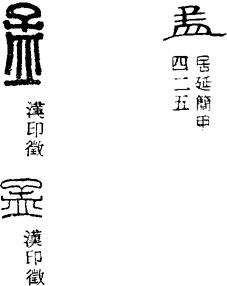 孟
居延簡甲
四二五
孟
漢印徵
孟
漢印徵